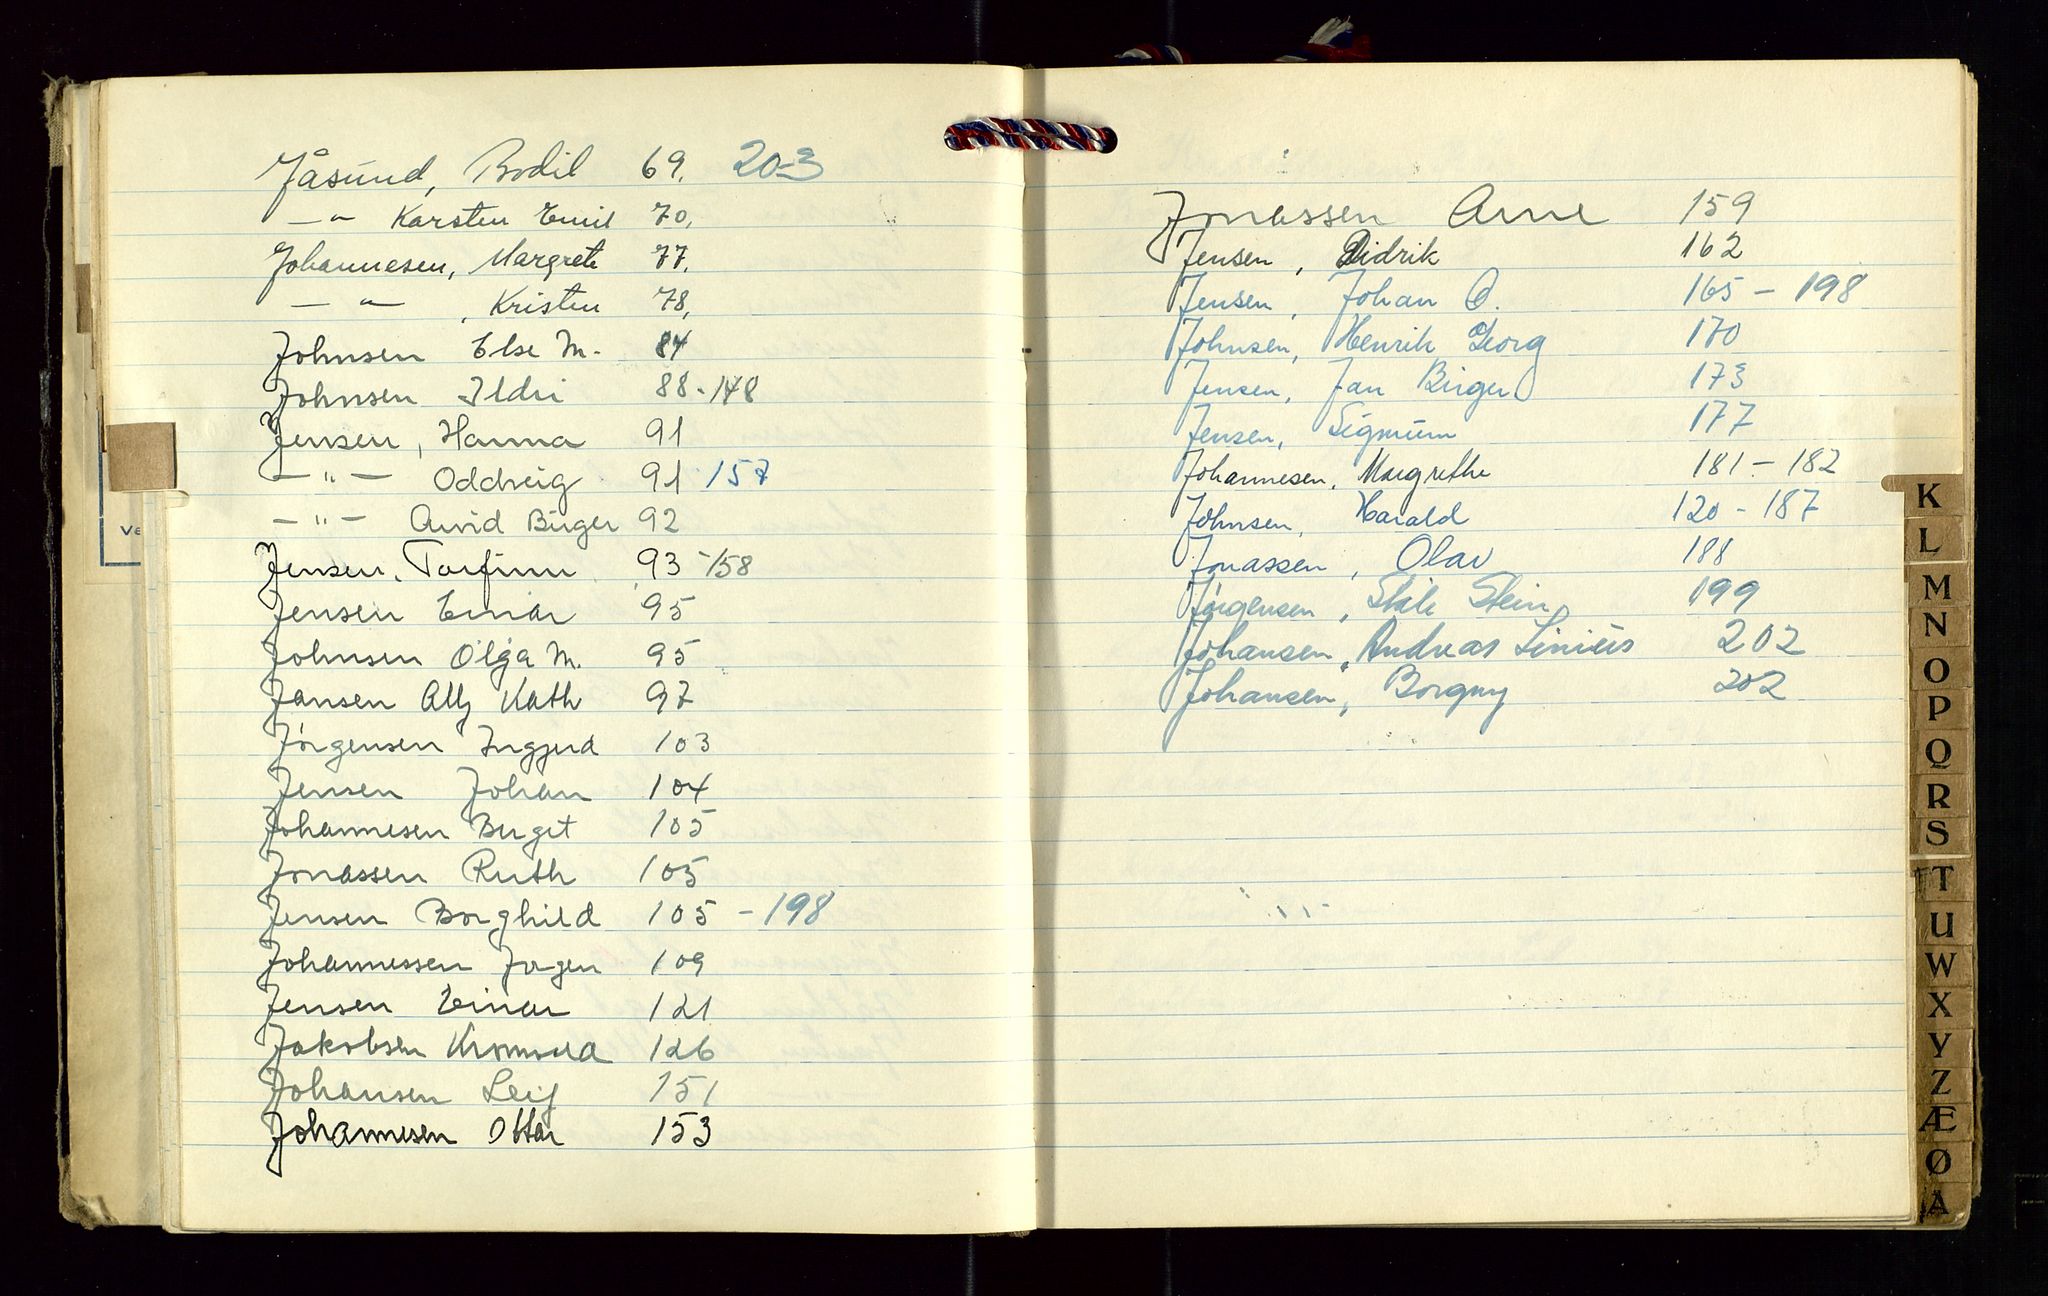 Jåsund, Bodil 69. 203
— " — Karsten Emil 70.
Johannesen, Margrete 77.
— " — , Kristen 78.
Johnsen Else M. 84
Johnsen Ildri 88-148
Jensen, Hanna 91
— " — Oddveig 91 157
— " — Arvid Birger 92
Jensen, Torfinn 93-158
Jensen Einar 95
Johnsen Olga M. 95
Jansen Ally Kath 97
Jørgensen Ingjerd 103
Jensen Johan 104
Johannesen Berget 105
Jonassen Ruth 105
Jensen Borghild 105 - 198
Johannessen Jørgen 109
Jensen Einar 121
Jakobsen 126
Johansen Leif 151
Johannesen Ottar 153
Jonassen Arne 159
Jensen, Didrik 162
Jensen, Johan O. 165 - 198
Johnsen, Henrik Georg 170
Jensen, Jan Birger 173
Jensen, Sigmunn 177
Johannesen, Margrethe 181 - 182
Johnsen, Harald 120 - 187
Jonassen, Olav 188
Jørgensen, Ståle Stein 199
Johansen, Andreas Linius 202
Johansen, Borgny 202
Ve
K
L
M
N
O
P
Q
R
S
T
U
W
X
Y
Z
Æ
Ø
A